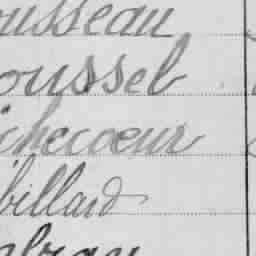 ousseau
oussel
ichecoeur
billard